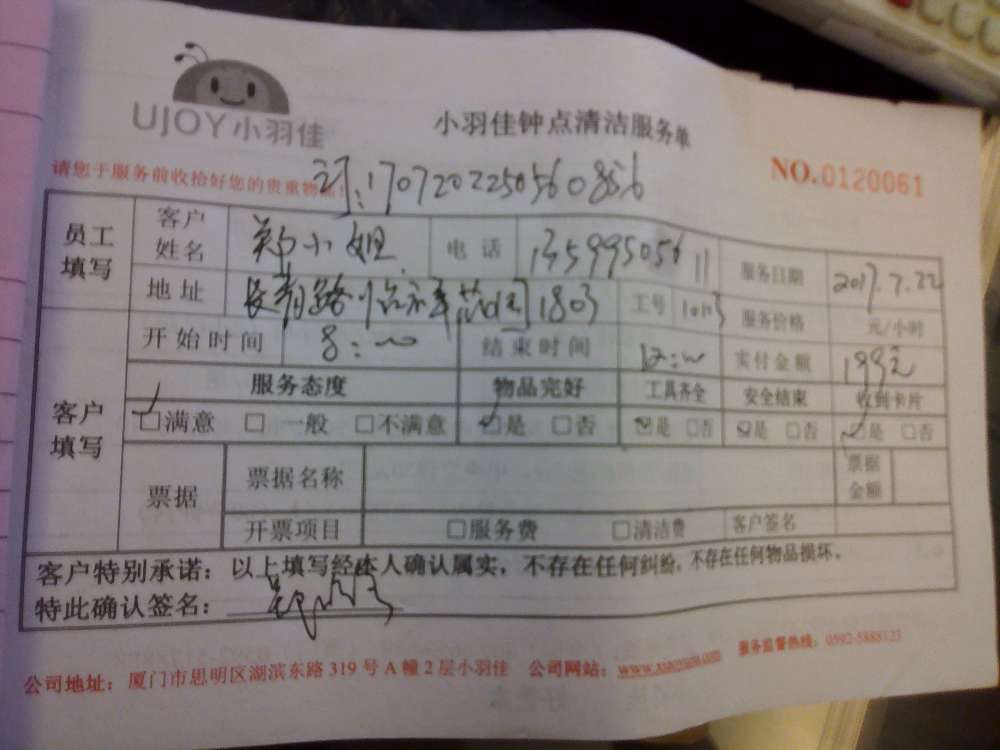 UJOY小羽佳
小羽佳钟点清洁服务单
NO.0120061
请您于服务前收拾好您的贵重物品:
170720225056086
员工填写 客户姓名 郑小姐 电话 13599505611 服务日期 2017.7.22
地址 长青路 1803 工号 服务价格 元/小时
客户填写 开始时间 8: 结束时间 12: 实付金额 199元
服务态度 物品完好 工具齐全 安全结束 收到卡片
□满意 □一般 □不满意 □是 □否 □是 □否 □是 □否 □是 □否
票据 票据名称 票据金额
开票项目 □服务费 □清洁费 客户签名
客户特别承诺:以上填写经本人确认属实,不存在任何纠纷,不存在任何物品损坏。
特此确认签名:
公司地址:厦门市思明区湖滨东路319号A幢2层小羽佳 公司网站: 服务监督热线:0592-5888123